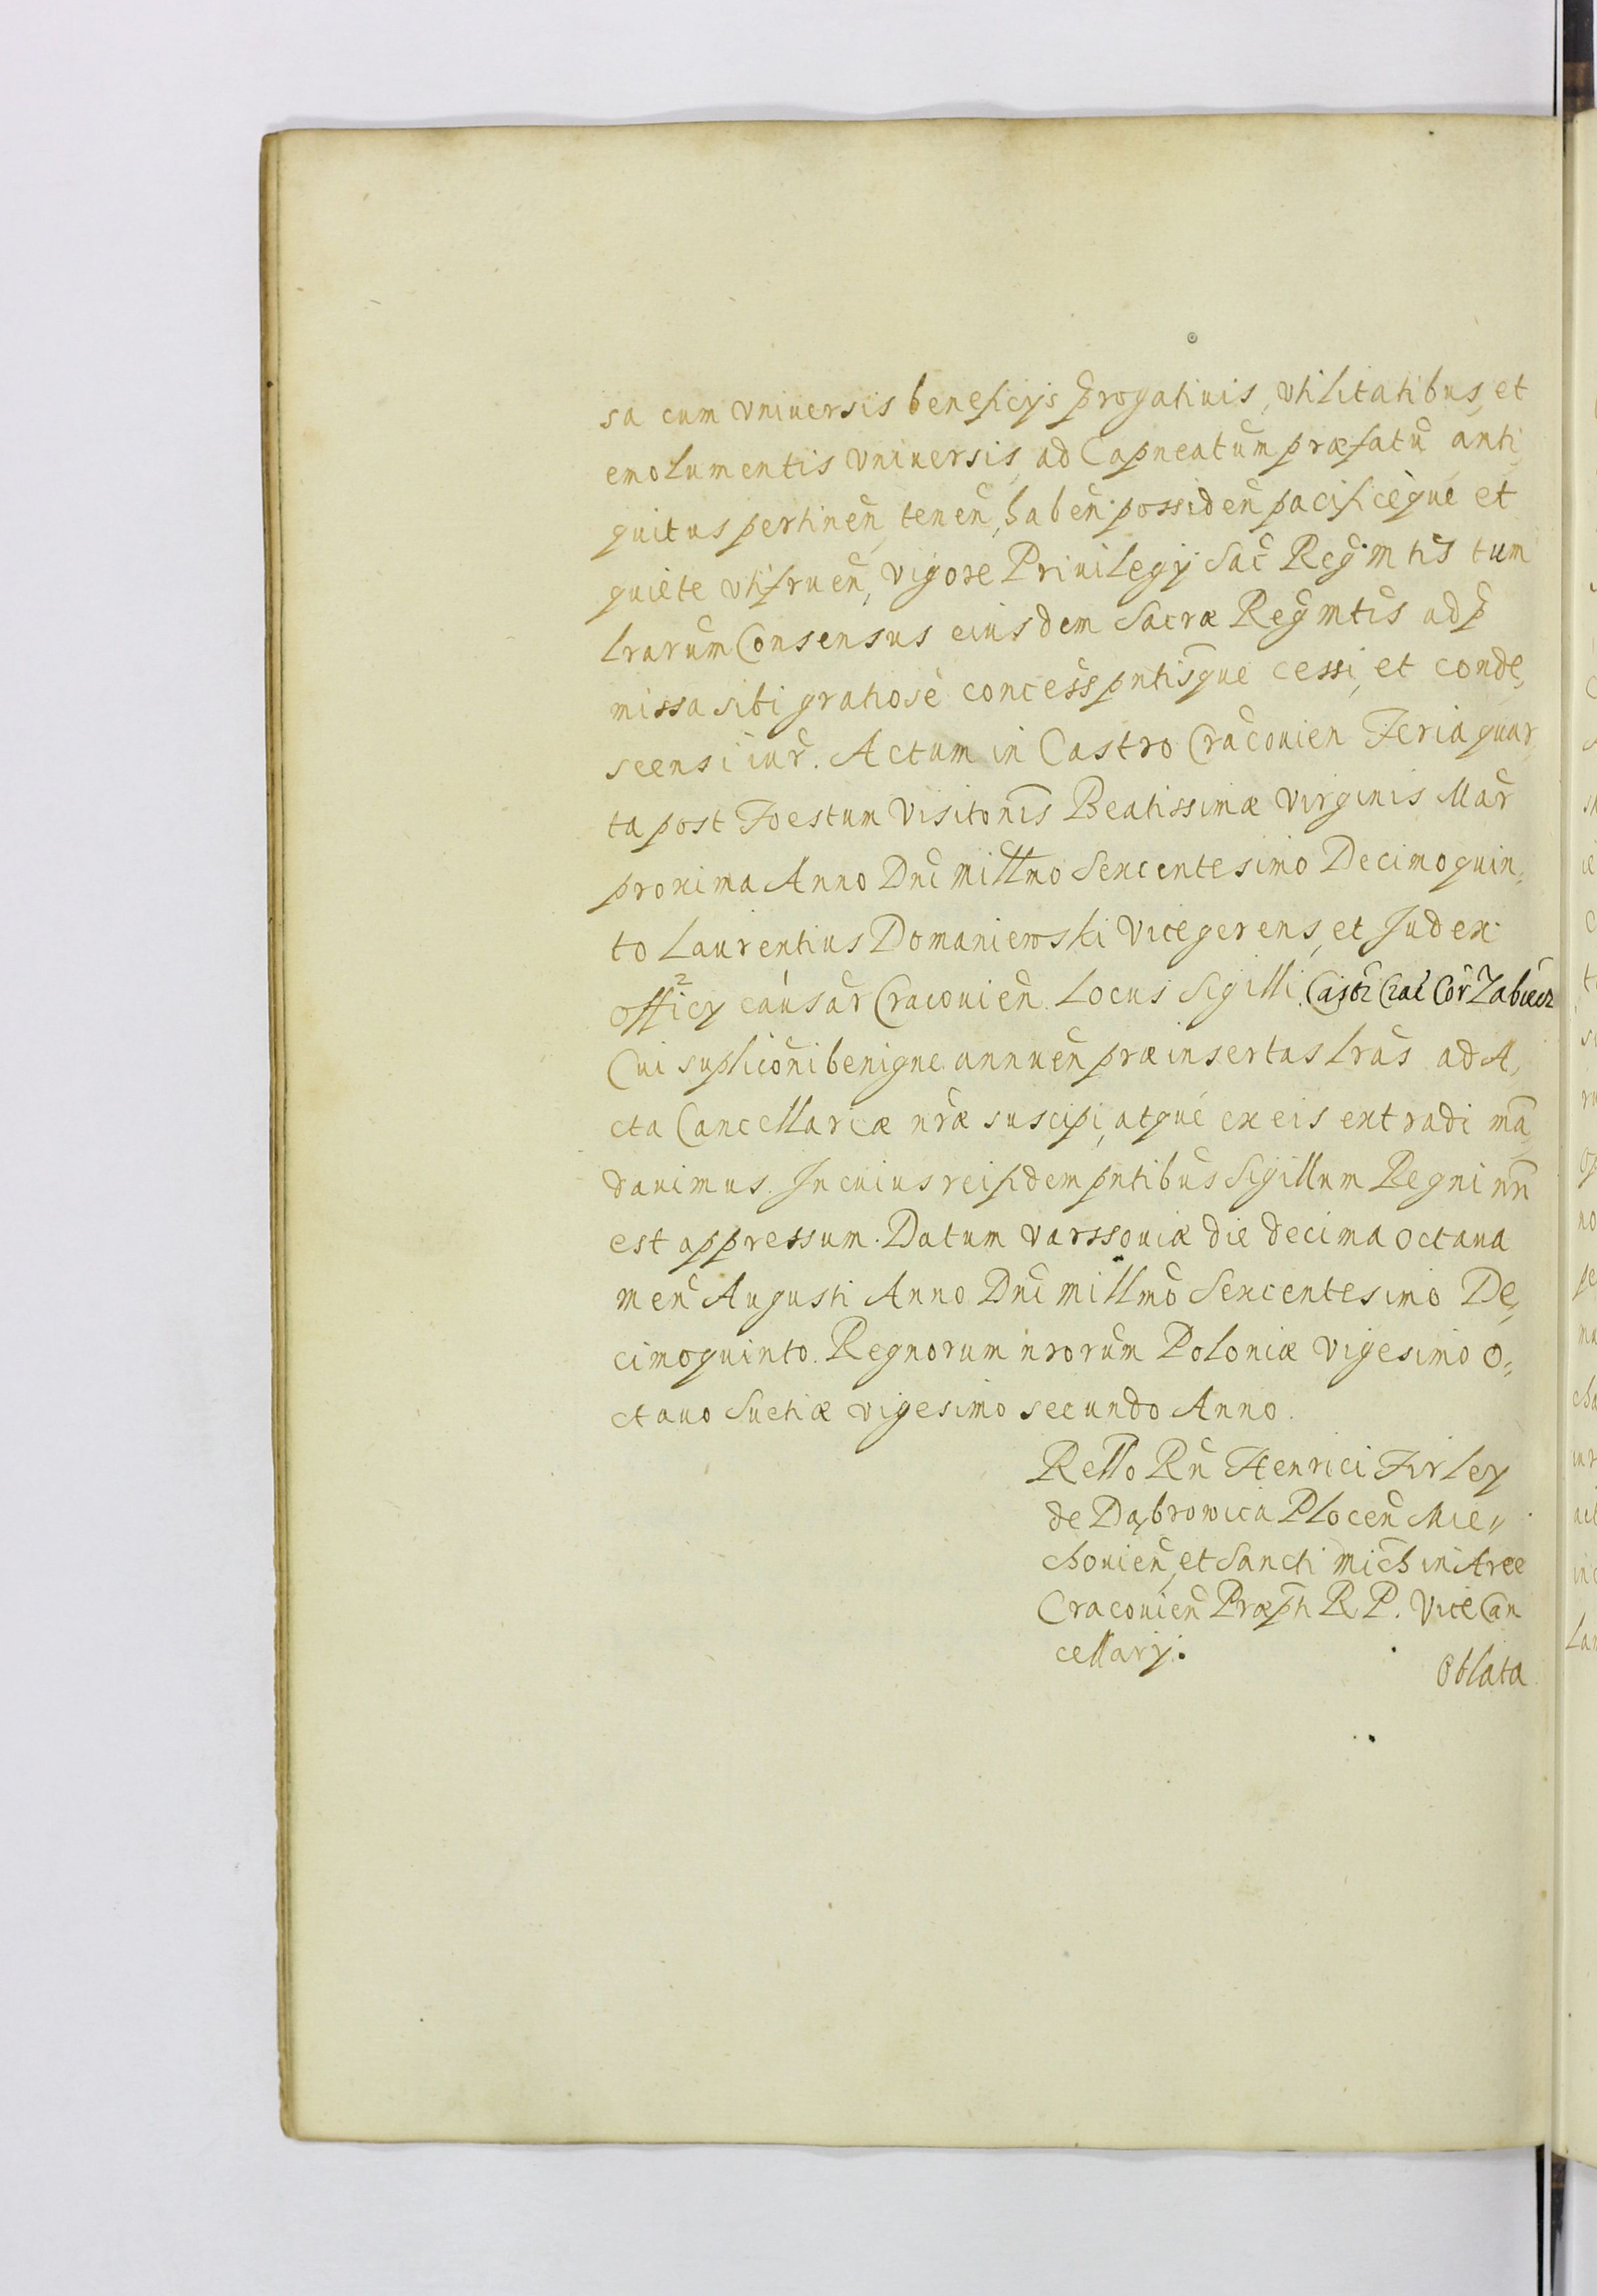 sa cum vniuersis beneficijs p̄rogatiuis, vtilitatibus, et
emolumentis vniuersis, ad Capneatum præfatū anti,
quitus pertinen̄, tenen̄, haben̄ possiden̄ pacificèque et
quiète vtifruen̄, vigore Priuilegij Sac̄ Reḡ Mtis tum
lrarum Consensus eiusdem Sacræ Reḡ Mtis ad p̄
missa sibi gratiosè concess̄ pn̄tisque cessi, et conde,
scensi iur̄. Actum in Castro Cracouien Feria quar,
ta post Foestum Visitōnis Beatissimæ Virginis Mar̄
proxima Anno Dn̄i Mill̄mo Sexcentesimo Decimoquin,
to Laurentius Domaniewski Vicegerens, et Judex
Officy causar̄ Cracouien̄. Locus Sigilli.
Cui suplicōni benigne annuen̄ præinsertas lras̄ ad A,
cta Cancellariæ nr̄æ suscipi, atque ex eis extradi mā,
dauimus. In cuius rei fidem pn̄tibus Sigillum Regni nr̄i
est appressum. Datum Varssouiæ die decima octaua
men̄ Augusti Anno Dn̄i Millmō Sexcentesimo De,
cimoquinto. Regnorum nrorum Poloniæ Vigesimo o,
ctauo Suetiæ vigesimo secundo Anno.
Rello Rn̄ Henrici Firley
de Dąbrowica Plocen̄ Mie,,
chouien̄, et Sancti Mich̄ in Arce
Cracouien̄ Præpti R. P. Vice Can
cellarij.
Oblata